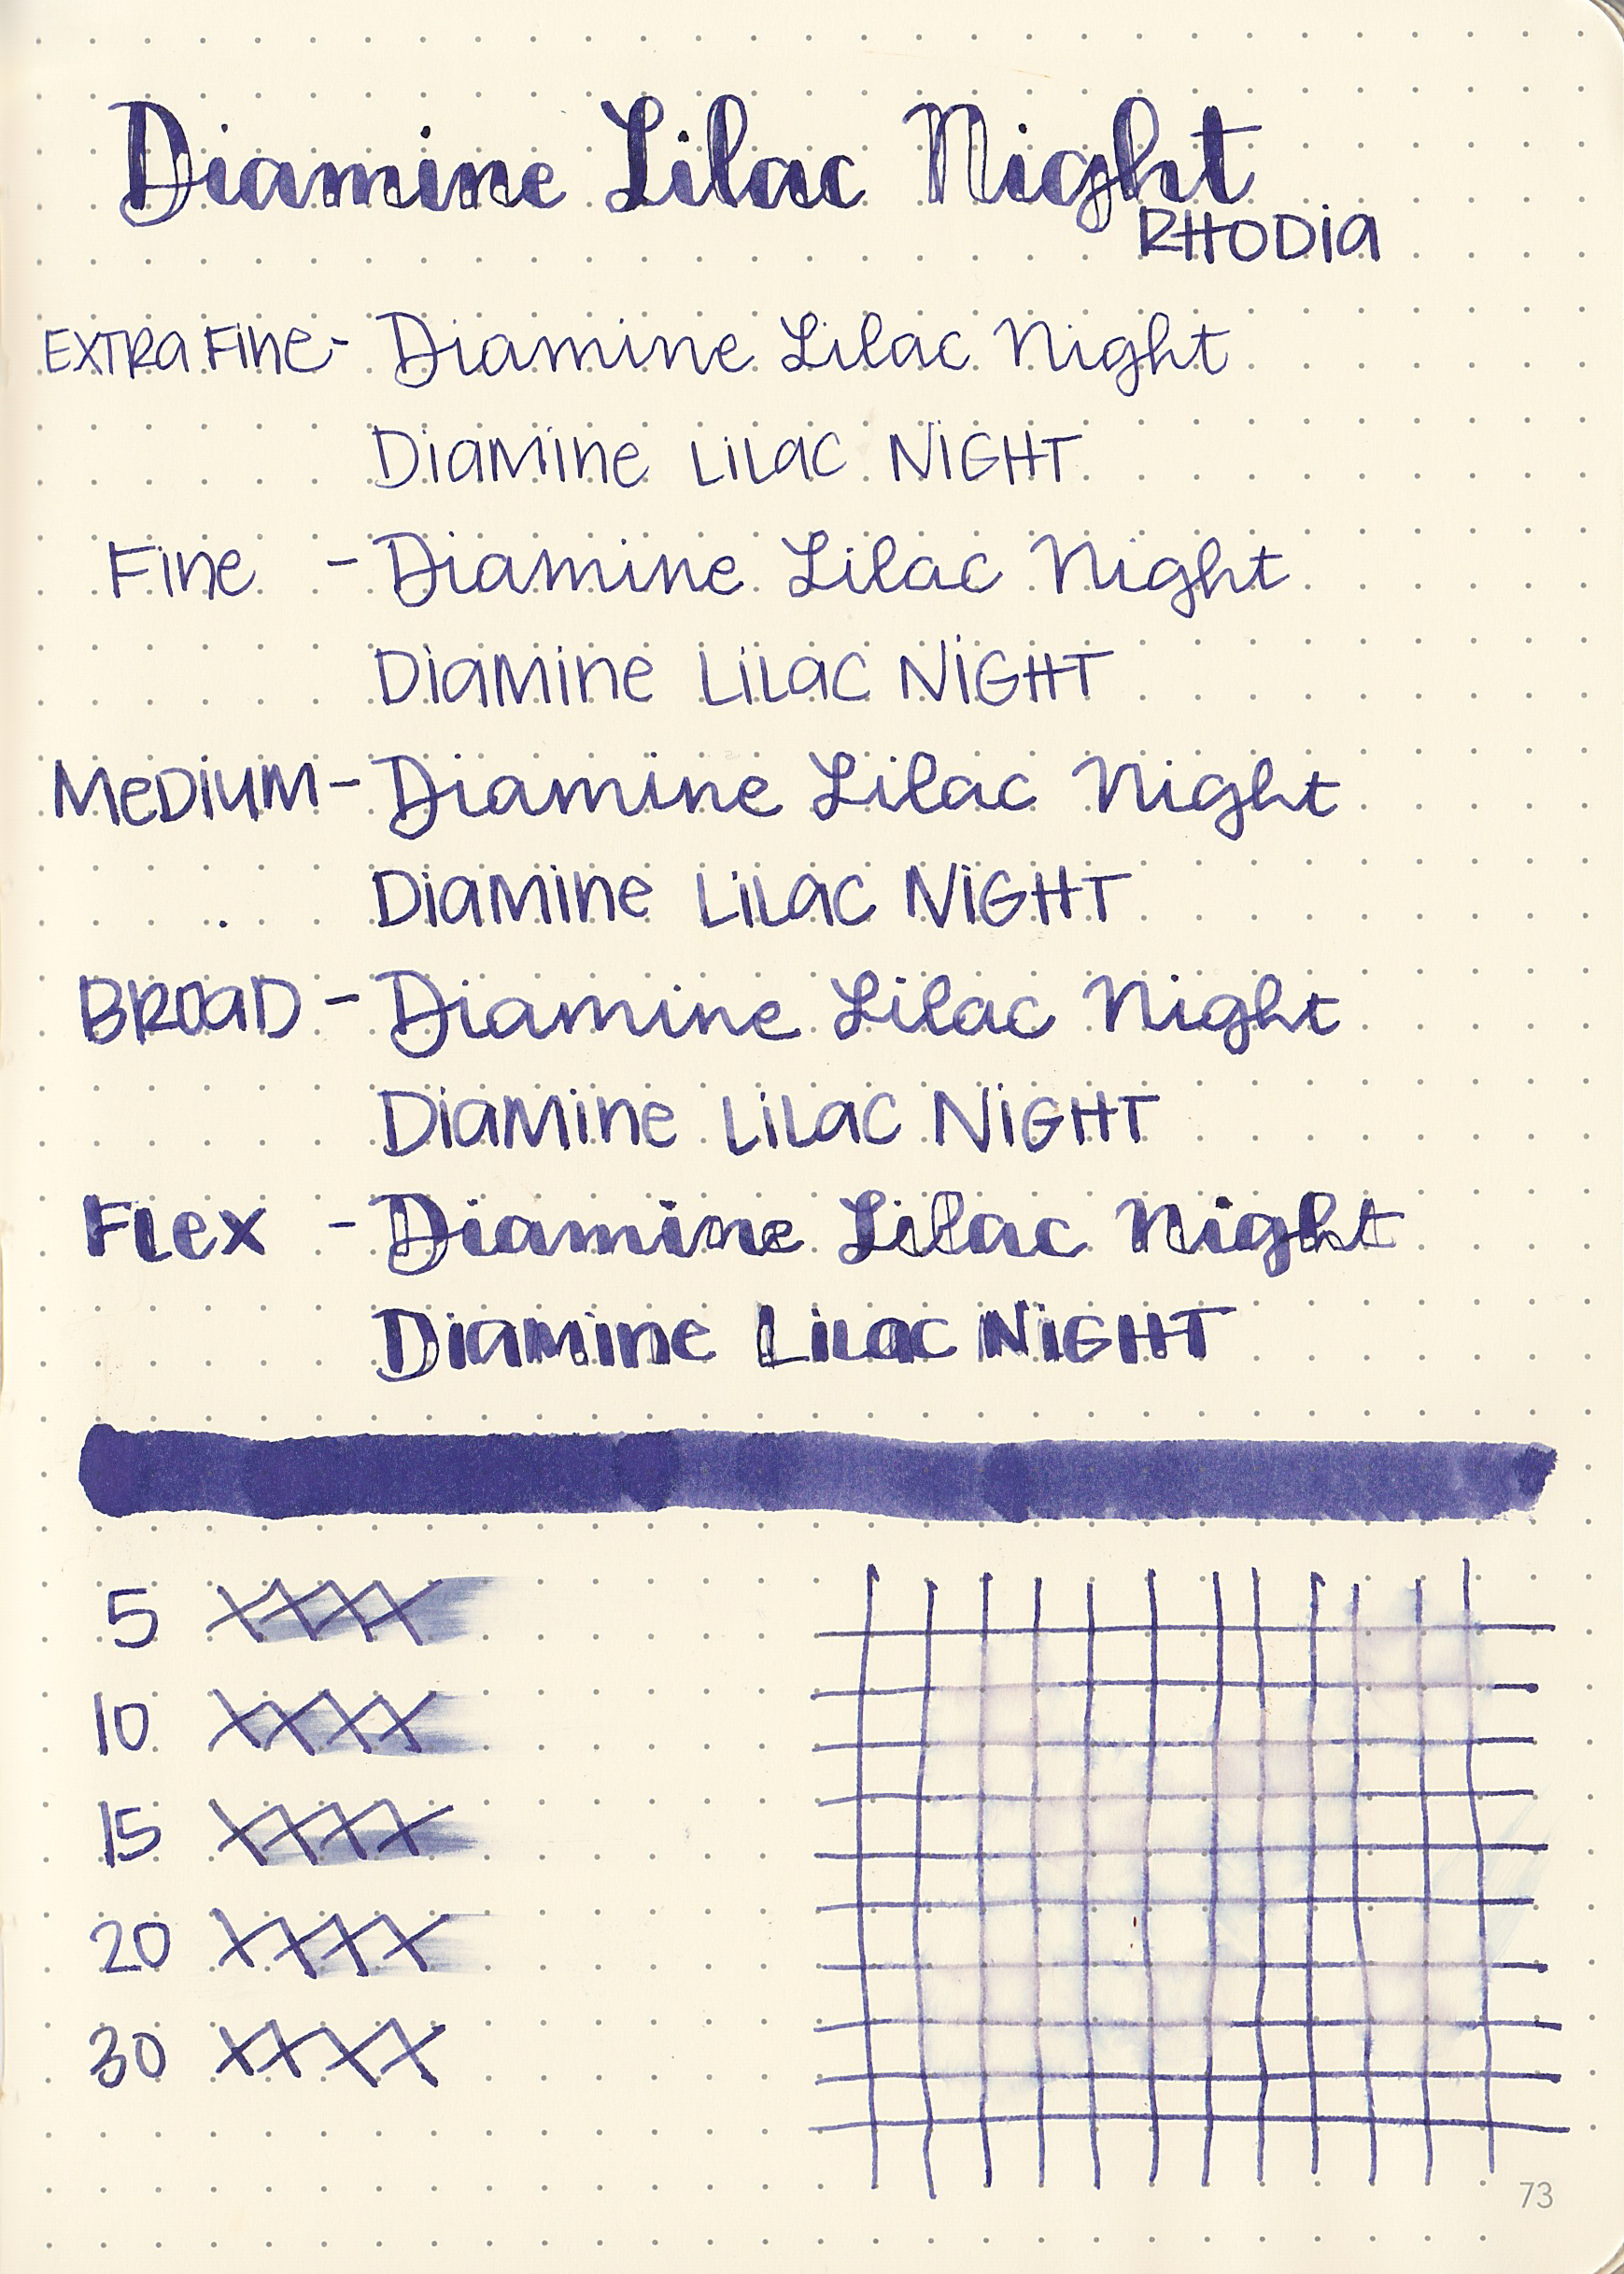 Diamine Lilac Night
RHODIA
EXTRA FINE - Diamine Lilac Night
DIAMINE LILAC NIGHT
FINE - Diamine Lilac Night
DIAMINE LILAC NIGHT
MEDIUM - Diamine Lilac Night
DIAMINE LILAC NIGHT
BROAD - Diamine Lilac Night
DIAMINE LILAC NIGHT
FLEX - Diamine Lilac Night
DIAMINE LILAC NIGHT
5 XXXX
10 XXXX
15 XXXX
20 XXXX
30 XXXX
73